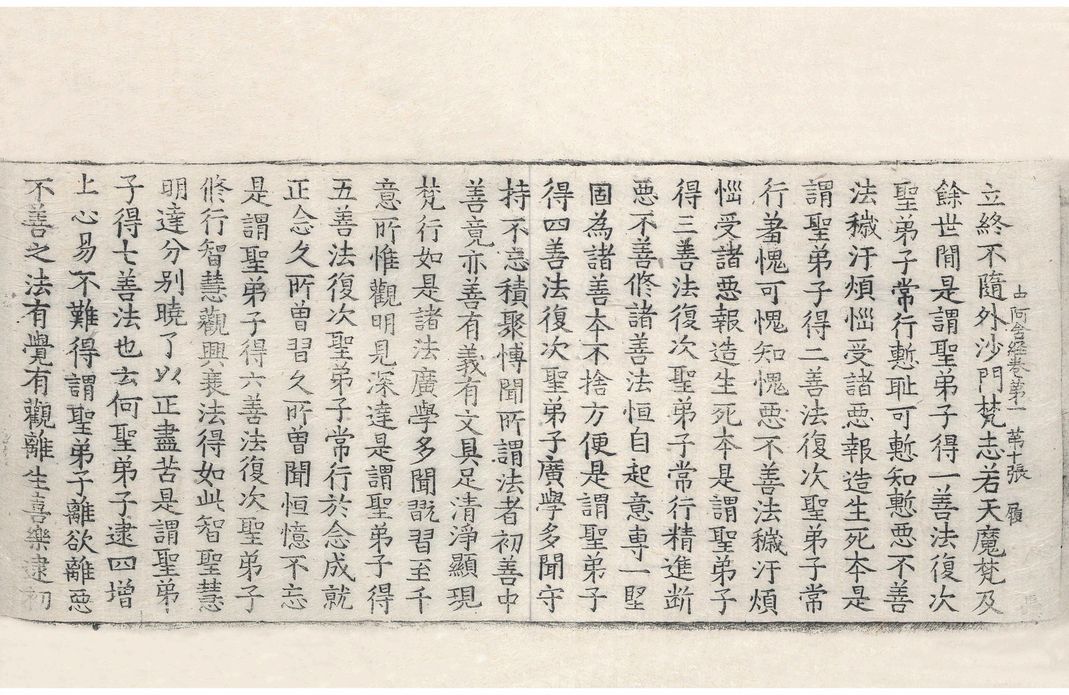 中阿含經卷第一 第十張 履
立終不隨外沙門梵志若天魔梵及
餘世間是謂聖弟子得一善法復次
聖弟子常行慙耻可慙知慙惡不善
法穢汙煩惱受諸惡報造生死本是
謂聖弟子得二善法復次聖弟子常
行羞愧可愧知愧惡不善法穢汙煩
惱受諸惡報造生死本是謂聖弟子
得三善法復次聖弟子常行精進斷
惡不善脩諸善法恒自起意專一堅
固為諸善本不捨方便是謂聖弟子
得四善法復次聖弟子廣學多聞守
持不忘積聚愽聞所謂法者初善中
善竟亦善有義有文具足清淨顯現
梵行如是諸法廣學多聞翫習至千
意所惟觀明見深達是謂聖弟子得
五善法復次聖弟子常行於念成就
正念久所曾習久所曾聞恒憶不忘
是謂聖弟子得六善法復次聖弟子
脩行智慧觀興衰法得如此智聖慧
明達分別曉了以正盡苦是謂聖弟
子得七善法也云何聖弟子逮四增
上心易不難得謂聖弟子離欲離惡
不善之法有覺有觀離生喜樂逮初